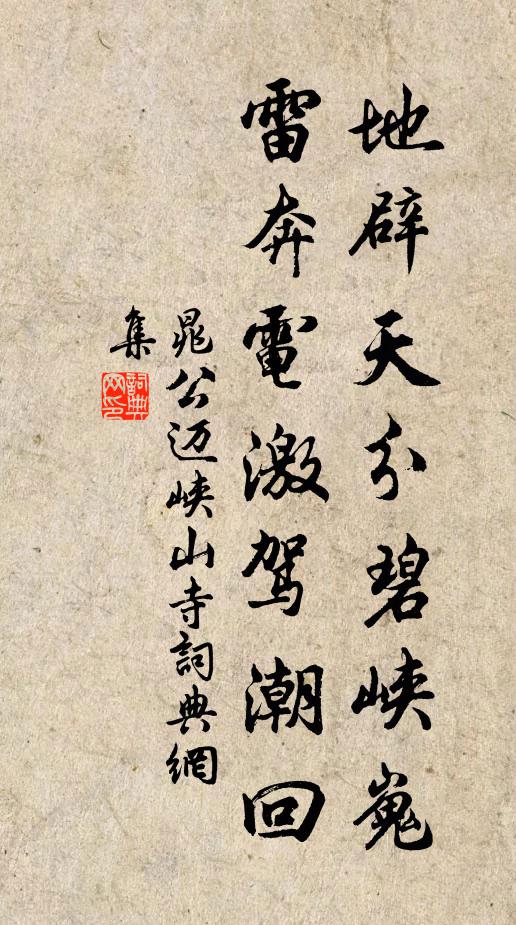 地辟天分碧峡嵬
雷奔電激駕潮回
晁公迈峡山寺詞典網
集
詞典
网印